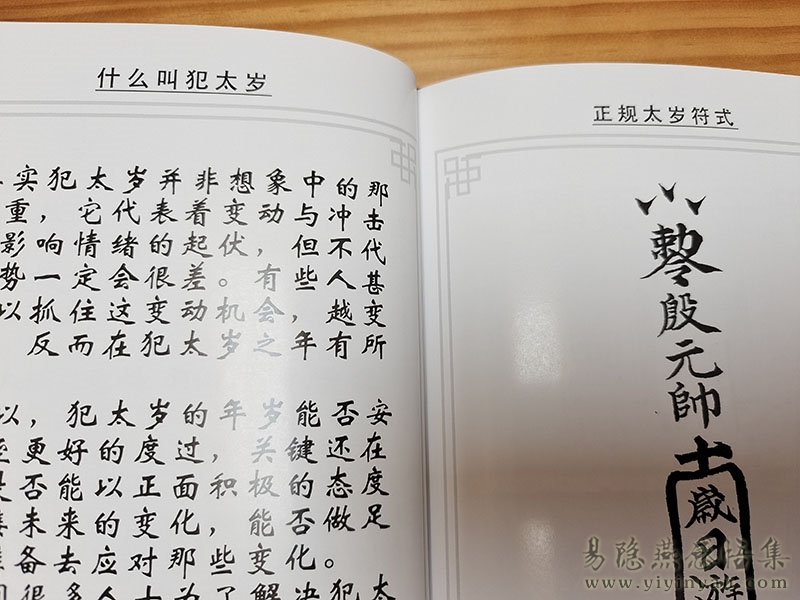 什么叫犯太岁
实犯太岁并非想象中的那
重，它代表着变动与冲击
影响情绪的起伏，但不代
势一定会很差。有些人甚
以抓住这变动机会，越变
反而在犯太岁之年有所
以，犯太岁的年岁能否安
更好的度过，关键还在
是否能以正面积极的态度
未来的变化，能否做足
准备去应对那些变化。
很多人士为了解决犯太
正规太岁符式
殷元帥
歲日游
易隐燕
悟集
www.yiyinyan.com